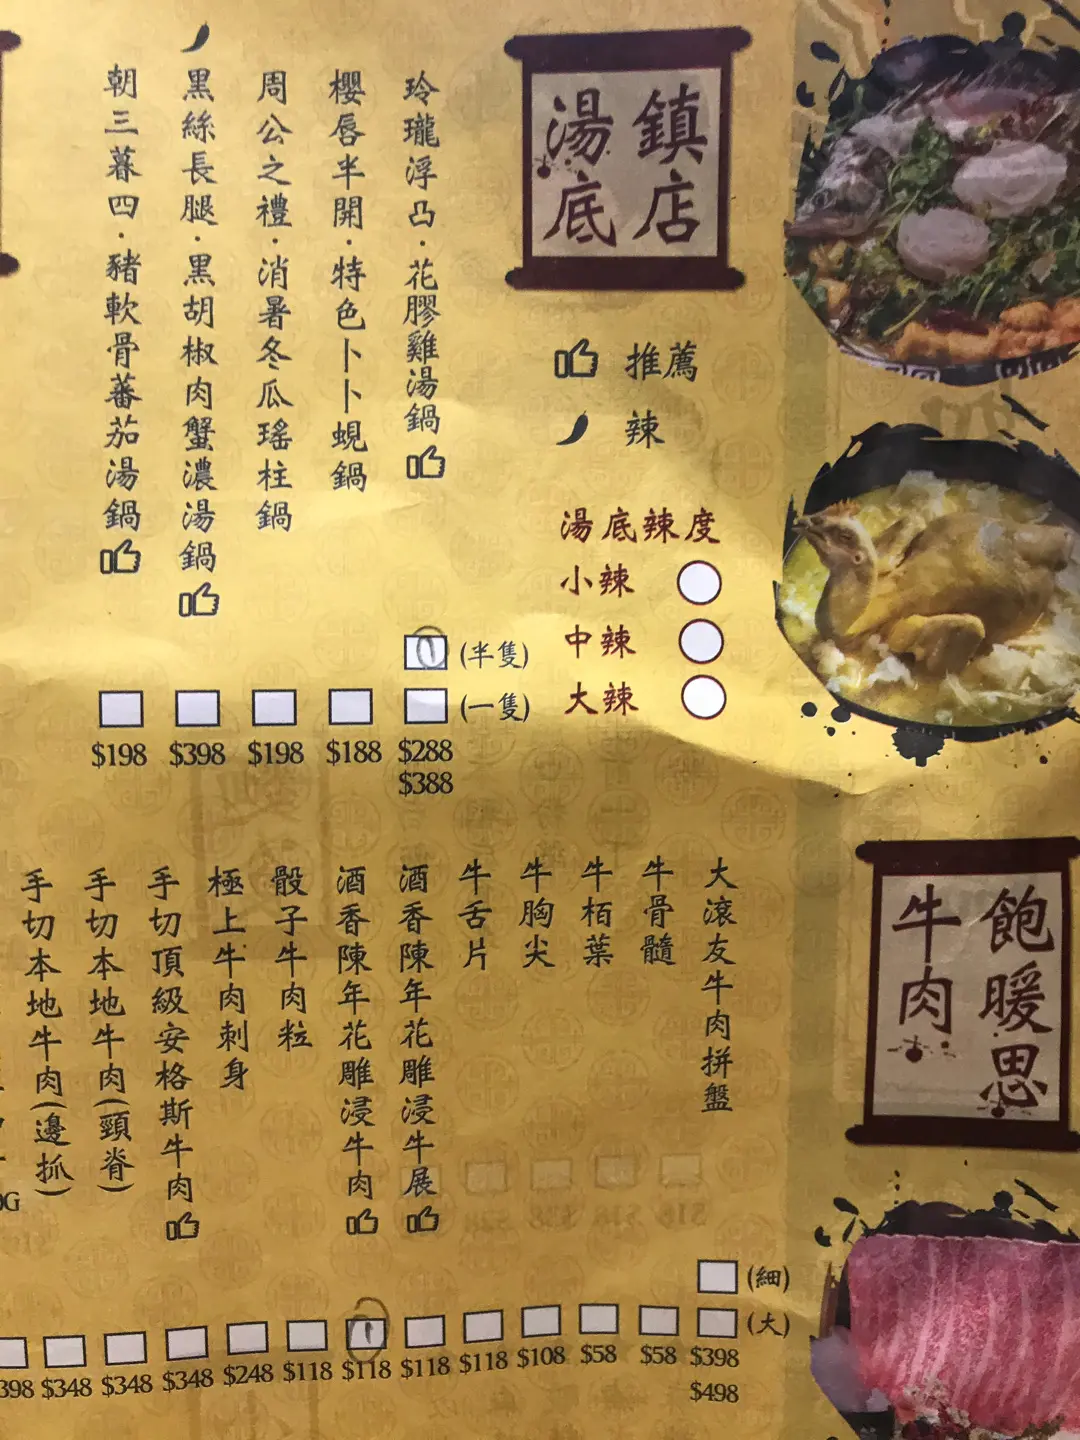 鎮店
湯底
推薦
辣
湯底辣度
小辣
中辣
大辣
玲瓏浮凸·花膠雞湯鍋
(半隻)
(一隻)
$288
$388
櫻唇半開·特色卜卜蜆鍋
$188
周公之禮·消暑冬瓜瑤柱鍋
$198
黑絲長腿·黑胡椒肉蟹濃湯鍋
$398
朝三暮四·豬軟骨蕃茄湯鍋
$198
飽暖思
牛肉
大滾友牛肉拼盤
(細)
(大)
$398
$498
牛骨髓
$58
牛栢葉
$58
牛胸尖
$108
牛舌片
$118
酒香陳年花雕浸牛展
$118
酒香陳年花雕浸牛肉
$118
骰子牛肉粒
$118
極上牛肉刺身
$248
手切頂級安格斯牛肉
$348
手切本地牛肉(頸脊)
$348
手切本地牛肉(邊抓)
$348